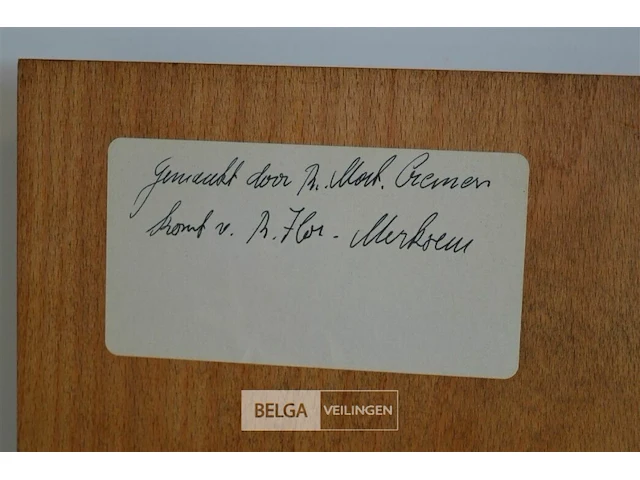 Gemaakt door R. Mart. Cremers
komt v. R. Flor - Merksem
BELGA VEILINGEN